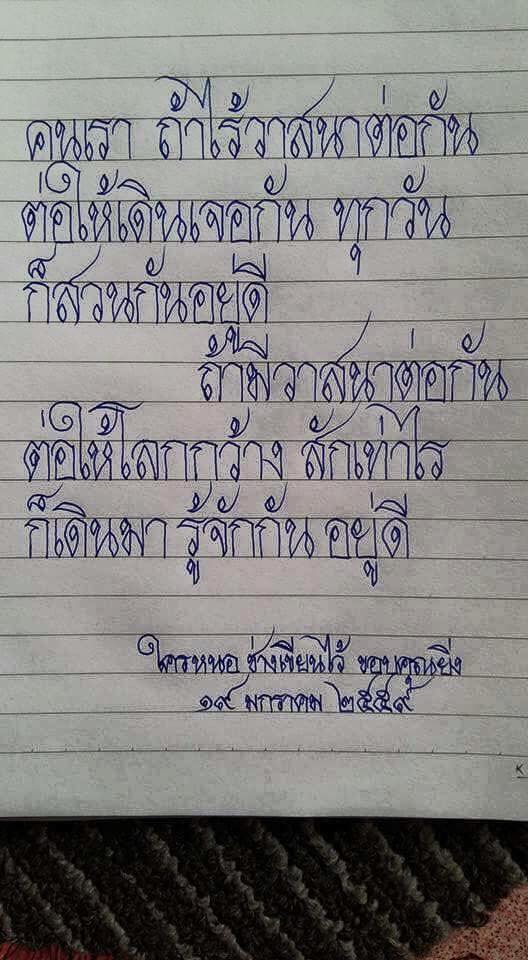 คนเรา ถ้าไร้วาสนาต่อกัน
ต่อให้เดินเจอกัน ทุกวัน
ก็สวนกันอยู่ดี
ถ้ามีวาสนาต่อกัน
ต่อให้โลกกว้าง สักเท่าไร
ก็เดินมา รู้จักกัน อยู่ดี
ใครหนอ ช่างเขียนไว้ ขอบคุณยิ่ง
๑๙ มกราคม ๒๕๕๙
K